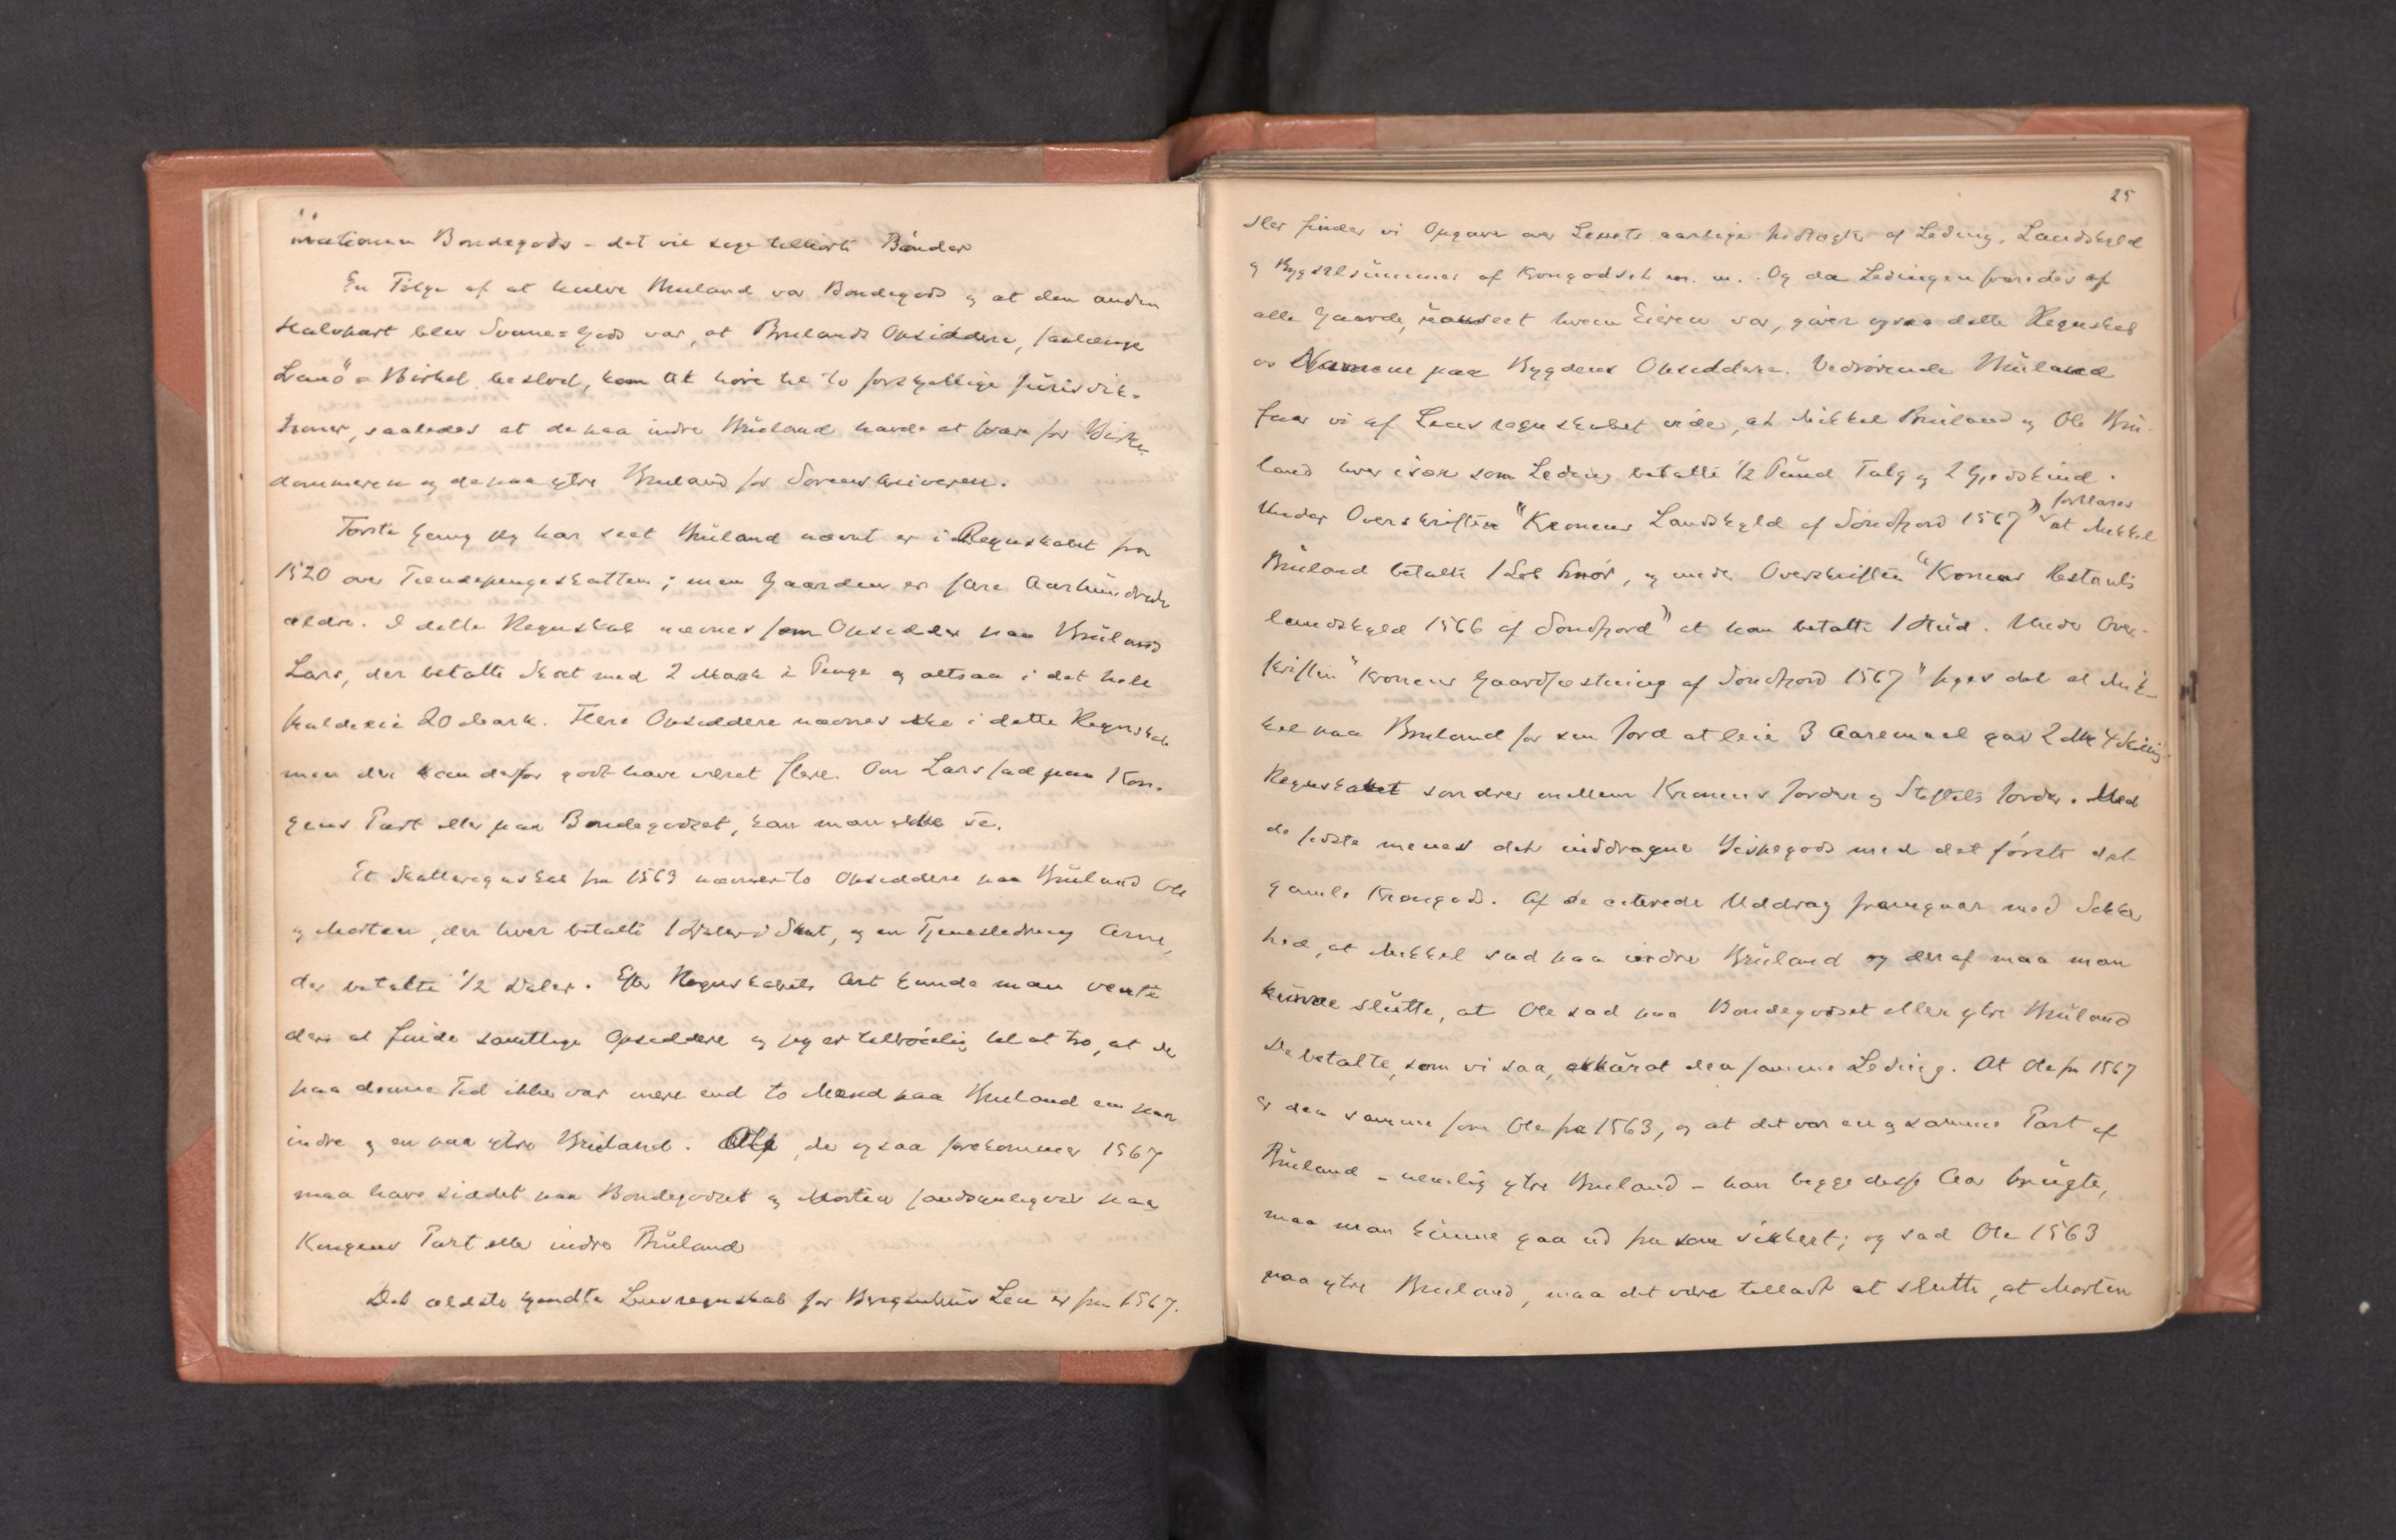 mationen Bondegods - det vil sige tilhørte Bønder
En Følge af at halve Bruland var Bondegods og at den anden
Halvpart blev Svanøgods var, at Brulands Opsiddere, saalænge
Svanø-Birket bestod, kom at høre til to forskjellige Jurisdik-
tioner, saaledes at de paa indre Bruland havde at svare for Birke-
dommeren og de paa ytre Bruland for Sorenskriveren.
Første Gang jeg har seet Bruland nævnt er i Regnskabet fra
1520 over Tiendepengeskatten; men Gaarden er flere Aarhundreder
ældre. I dette Regnskab nævnes som Opsidder paa Bruland
Lars, der betalte Skat med 2 Mark i Penge og altsaa i det hele
skulde eie 20 Mark. Flere Opsiddere nævnes ikke i dette Regnskab
men der kan derfor godt have været flere. Om Lars sad paa Kon-
gens Part eller paa Bondegodset, kan man ikke se.
Et Skatteregnskab fra 1563 nævner to Opsiddere paa Bruland Ole
og Morten, der hver betalte 1 Daler i Skat, og en Tjenestedreng Arne,
der betalte 1/2 Daler. Efter Regnskabets Art kunde man vente
der at finde samtlige Opsiddere og jeg er tilbøielig til at tro, at der
paa denne Tid ikke var mere end to Mænd paa Bruland en paa
indre og en paa ytre Bruland. Ole, der ogsaa forekommer 1567
maa have siddet paa Bondegodset og Morten sandsynligvis paa
Kongens Part eller indre Bruland
Det ældste kjendte Lensregnskab for Bergenhus Len er fra 1567.
25
Her finder vi Opgave over Lenets aarlige Indtægter af Leding, Landskyld
og Bygselsummer af Krongodset m. m. Og da Ledingen svaredes af
alle Gaarde, uanseet hvem Eieren var, giver ogsaa dette Regnskab
os Navnene paa Bygdens Opsiddere. Vedrørende Bruland
faar vi af Lensregnskabet vide, at Mikkel Bruland og Ole Bru-
land hver især som Leding betalte 1/2 Pund Talg og 2 Gjedskind.
Under Overskriften "Kronens Landskyld af Søndfjord 1567" forklares at Mikkel
Bruland betalte 1 Løb Smør, og under Overskriften "Kronens Restants
landskyld 1566 af Søndfjord" at han betalte 1 Hud. Under Over-
skriften "Kronens Gaardfæstning af Søndfjord 1567" siges det at Mik-
kel paa Bruland for sin Jord at leie 3 Aaremaal gav 2 Mk 4 Skilling.
Regnskabet sondrer mellem Kronens Jorder og Stiftets Jorder. Med
de sidste menes det inddragne Bispegods med det første det
gamle Krongods. Af de citerede Uddrag fremgaar med Sikker
hed, at Mikkel sad paa indre Bruland og deraf maa man
kunne slutte, at Ole sad paa Bondegodset eller ytre Bruland
De betalte, som vi saa, akkurat den samme Leding. At Ole fra 1567
er den samme som Ole fra 1563, og at det var en og samme Part af
Bruland - nemlig ytre Bruland - han begge disse Aar brugte,
maa man kunne gaa ud fra som sikkert; og sad Ole 1563
paa ytre Bruland, maa det være tilladt at slutte, at Morten